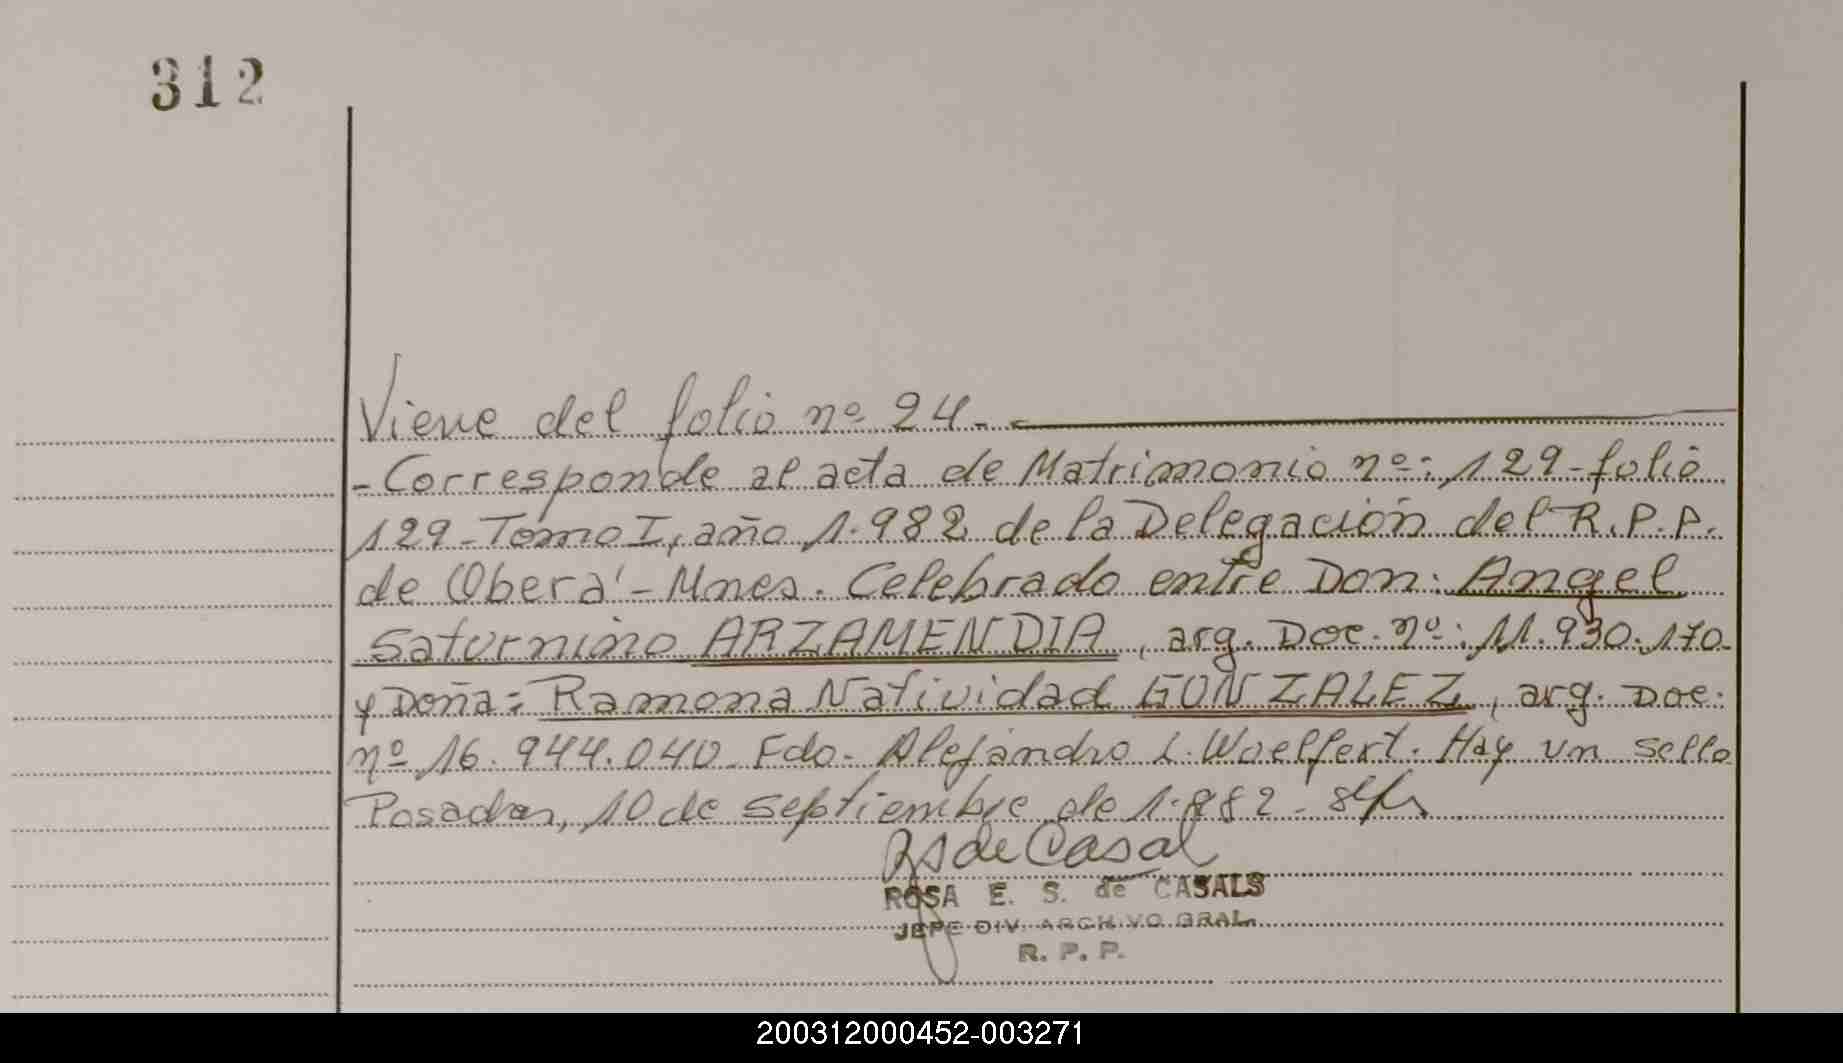 312
Viene del folio nº 24.-
- Corresponde al acta de Matrimonio nº: 129 - folio
129 - Tomo I, año 1.982 de la Delegación del R.P.P.
de Oberá - Mnes. Celebrado entre Don: Angel
Saturnino ARZAMENDIA, arg. Doc. nº: 11.930.170-
y Doña: Ramona Natividad GONZALEZ, arg. Doc.
nº 16.944.040. Fdo. Alejandro L. Woelfert. Hay un sello
Posadas, 10 de septiembre de 1.982 -
RS de Casal
ROSA E. S. de CASALS
JEFE DIV. ARCHIVO GRAL.
R. P. P.
200312000452-003271